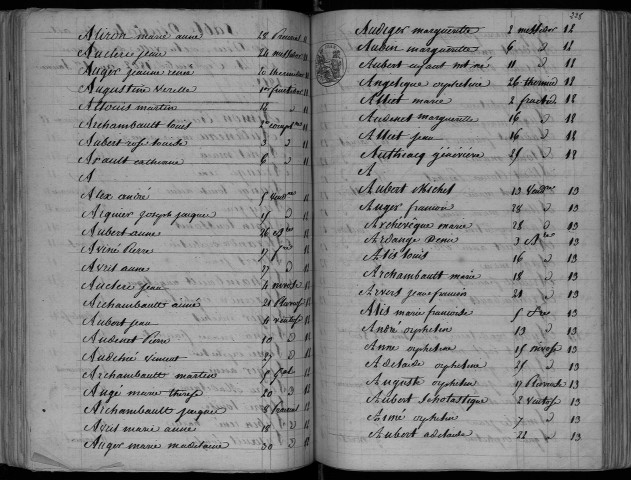 Aliron marie anne 28 Prairial 11
Auclerc jean 24 messidor 11
Auger jeanne reine 10 thermidor 11
Augustin 1er fructidor 11
Allouis martin 12 11
Archambault louis 2e compl.re 11
Aubert rose 3 d 11
Arault catherine 6 d 11
A
Alex andré 5 Vend.re 12
Arquier joseph jacques 15 d 12
Aubert anne 26 B.re 12
Aviné Pierre 17 f.re 12
Avril anne 27 d 12
Auclerc jean 4 nivose 12
Archambault aimée 21 Pluviose 12
Aubert jean 4 ventose 12
Audenet Pierre 10 d 12
Audebné vincent 27 d 12
Archambault martin 17 g.al 12
Angé marie therese 20 d 12
Archambault jacques 8 prairial 12
Avril marie anne 18 d 12
Auger marie madelaine 30 d 12
228
Audiger marguerite 2 messidor 12
Aubin marguerite 6 d 12
Aubert enfant mort né 11 d 12
Angelique orpheline 26 thermid 12
Alliet marie 2 fructid 12
Audenet marguerite 16 d 12
Alliet jean 16 d 12
geneviève 25 d 12
A
Aubert Michel 13 Vend.re 13
Auger francois 28 d 13
Archevêque marie 28 d 13
Ardange Denis 3 B.re 13
Alis louis 16 d 13
Archambault marie 18 d 13
Arvers jean francois 21 d 13
Alis marie francoise 5 f.re 13
André orphelin 13 d 13
Anne orpheline 15 nivose 13
Adelaide orpheline 25 d 13
Auguste orphelin 17 Pluviose 13
Aubert scholastique 2 ventose 13
Aimé orphelin 7 d 13
Aubert adelaide 22 d 13